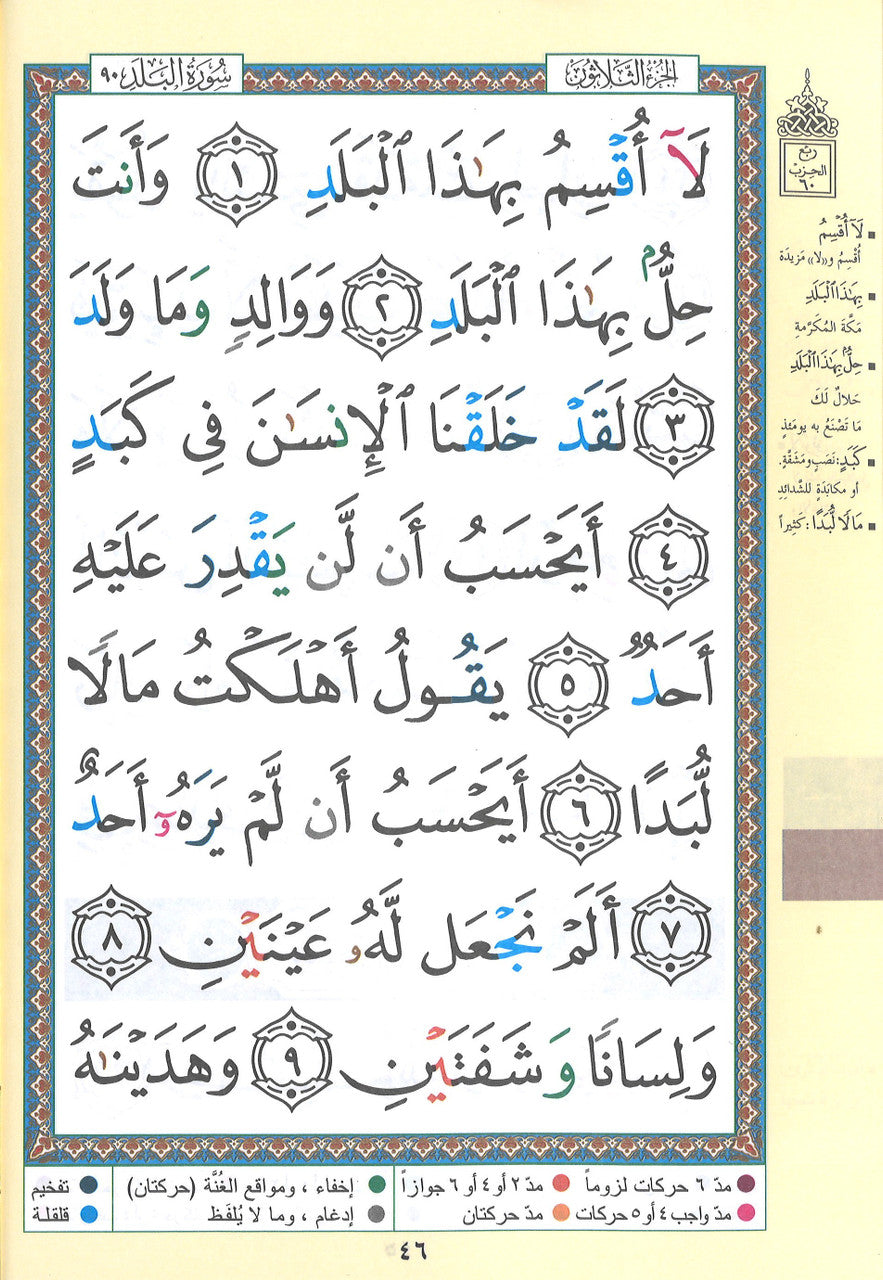 الجزء الثلاثون
سورة البلد ٩٠
لَآ أُقْسِمُ بِهَٰذَا ٱلْبَلَدِ ١ وَأَنتَ
حِلٌّۢ بِهَٰذَا ٱلْبَلَدِ ٢ وَوَالِدٍ وَمَا وَلَدَ
٣ لَقَدْ خَلَقْنَا ٱلْإِنسَٰنَ فِى كَبَدٍ
٤ أَيَحْسَبُ أَن لَّن يَقْدِرَ عَلَيْهِ
أَحَدٌ ٥ يَقُولُ أَهْلَكْتُ مَالًا
لُّبَدًا ٦ أَيَحْسَبُ أَن لَّمْ يَرَهُۥٓ أَحَدٌ
٧ أَلَمْ نَجْعَل لَّهُۥ عَيْنَيْنِ ٨
وَلِسَانًا وَشَفَتَيْنِ ٩ وَهَدَيْنَٰهُ
ربع
الحزب
٦٠
لَآ أُقْسِمُ
أُقْسِم و«لا» مَزيدَة
بِهَٰذَا ٱلْبَلَدِ
مَكَّة المُكَرَّمةِ
حِلٌّۢ بِهَٰذَا ٱلْبَلَدِ
حَلالٌ لَكَ
مَا تَصْنَعُ به يومَئذٍ
كَبَدٍ: نَصَبٍ ومَشَقّةٍ.
أو مكابَدَةٍ للشّدائِدِ
مَالًا لُّبَدًا: كَثيراً
مدّ ٦ حركات لزوماً مدّ ٢ أو ٤ أو ٦ جوازاً إخفاء، ومواقع الغُنَّة (حركتان) تفخيم
مدّ واجب ٤ أو ٥ حركات مدّ حركتان إدغام، وما لا يُلفَظ قلقلة
٤٦